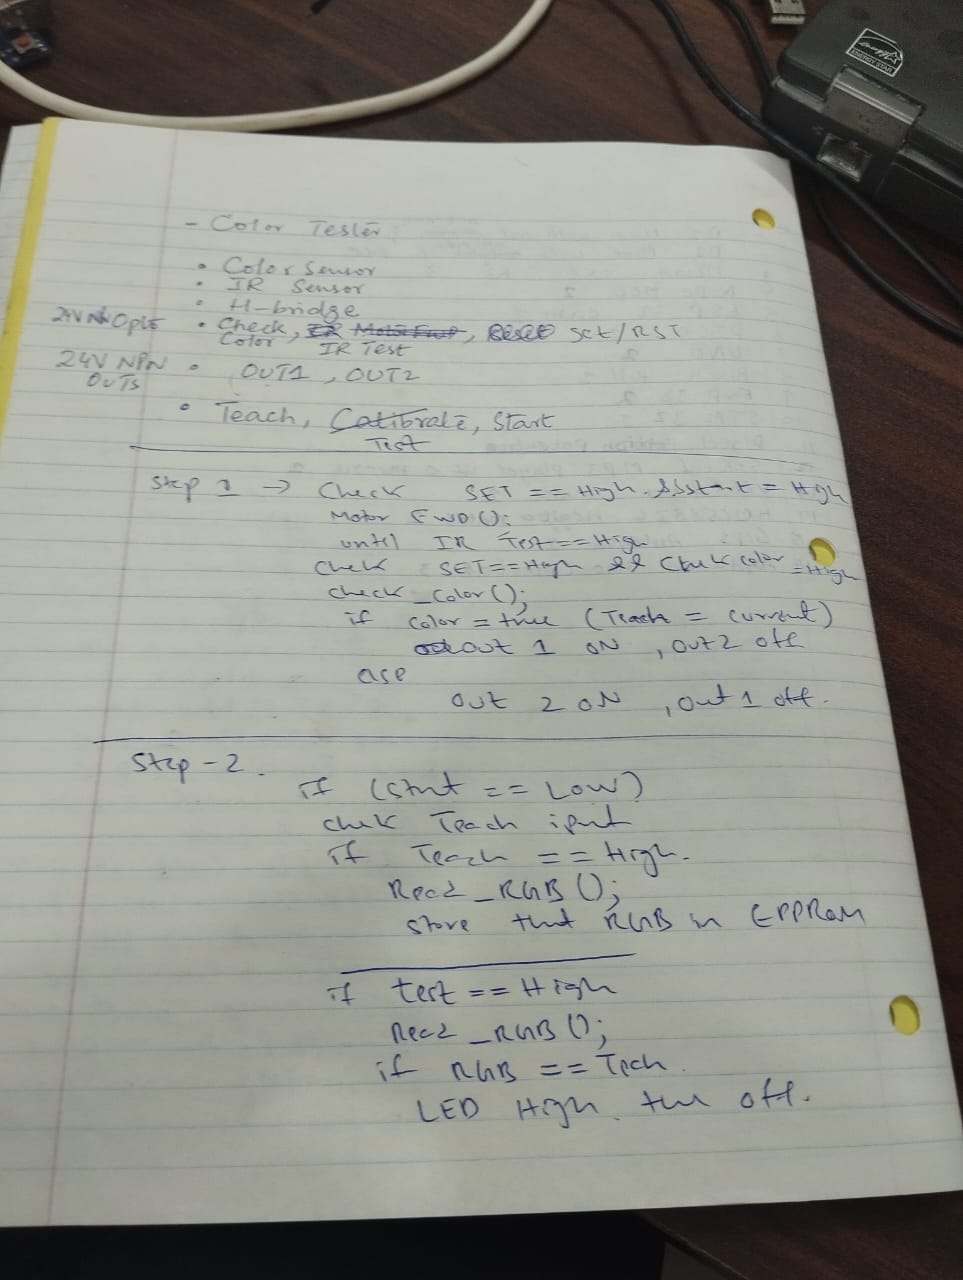 - Color Tester
• Color Sensor
• IR Sensor
• H-bridge
24V Opto • Check, IR Motor Fwd, Reset Set/RST
Color IR Test
24V NPN OUTs • OUT1, OUT2
• Teach, Calibrate, Start
Test
Step 1 → Check SET == High, Start = High
Motor FWD();
until IR Test == High
Check SET == High && Chek color = High
check_color();
if color = true (Teach = current)
out 1 ON, out 2 off
out 2 ON, out 1 off.
Step-2.
if (start == Low)
chek Teach iput
if Teach == High.
Read_RGB();
store that RGB in EPPRom
if test == High
Read_RGB();
if RGB == Tech
LED High the off.
ENERGY STAR